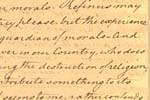 or morals. Refiners may
ry please, but the experience
guardian of morals. And
ver in our Country, who does
ng the destruction of religion,
ntributes something to its
seems to me, as the